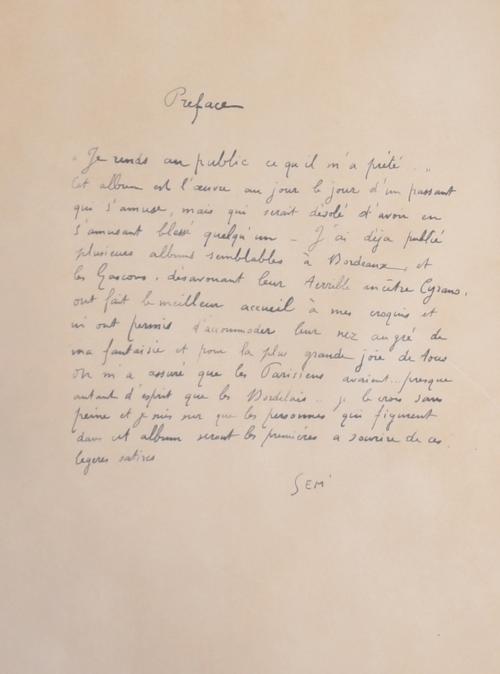 Preface
" Je rends au public ce qu'il m'a prêté . "
Cet album est l'œuvre au jour le jour d'un passant
qui s'amuse, mais qui serait désolé d'avoir en
s'amusant blessé quelqu'un – J'ai déja publié
plusieurs albums semblables à Bordeaux, et
les Gascons, désavouant leur terrible ancêtre Cyrano,
ont fait le meilleur accueil à mes croquis et
m'ont permis d'accommoder leur nez au gré de
ma fantaisie et pour la plus grande joie de tous
On m'a assuré que les Parisiens avaient.. presque
autant d'esprit que les Bordelais .. je le crois sans
peine et je suis sur que les personnes qui figurent
dans cet album seront les premières a sourire de ces
legeres satires
SEM